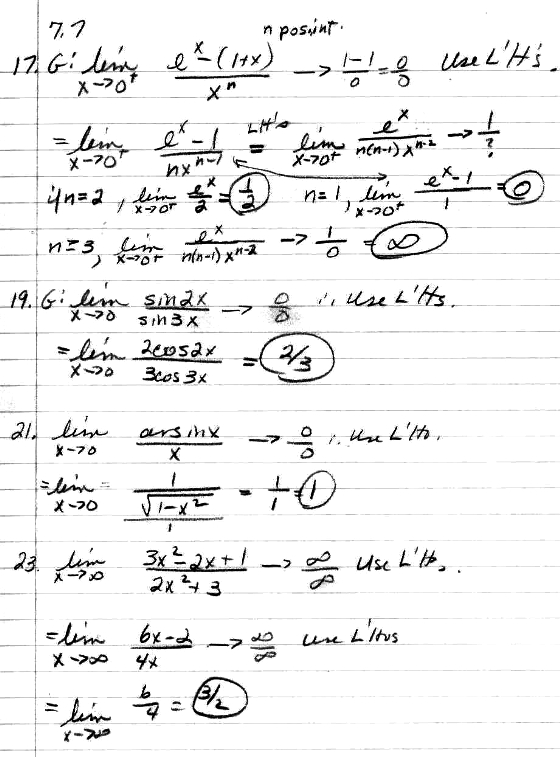 7.7 n pos.int.
17. G: lim x→0⁺ (eˣ-(1+x))/xⁿ → (1-1)/0 = 0/0 Use L'H's.
= lim x→0⁺ (eˣ-1)/(nxⁿ⁻¹) L'H's = lim x→0⁺ eˣ/(n(n-1)xⁿ⁻²) → 1/?
if n=2, lim x→0⁺ eˣ/2 = 1/2 n=1, lim x→0⁺ (eˣ-1)/1 = 0
n≥3, lim x→0⁺ eˣ/(n(n-1)xⁿ⁻²) → 1/0 = ∞
19. G: lim x→0 sin2x/sin3x → 0/0 ∴ Use L'Hs.
= lim x→0 2cos2x/3cos3x = 2/3
21. lim x→0 arsinx/x → 0/0 ∴ Use L'Ho.
= lim x→0 = (1/√(1-x²))/1 = 1/1 = 1
23. lim x→∞ (3x²-2x+1)/(2x²+3) → ∞/∞ Use L'Ho.
= lim x→∞ (6x-2)/4x → ∞/∞ Use L'Hos
= lim x→∞ 6/4 = 3/2